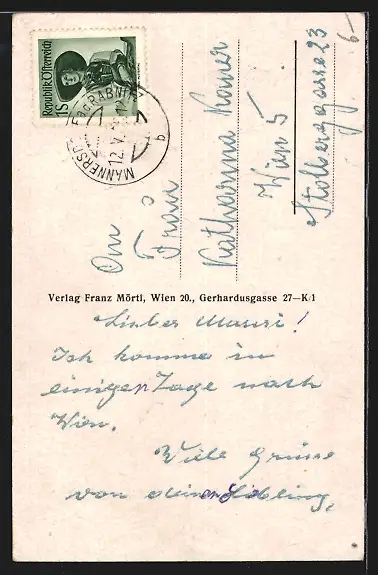 Republik Österreich
1S
MANNERSD
GRABN
12.V.
b
6-
An
Frau
Katharina
Wien 5
Stolberggasse 23
Verlag Franz Mörtl, Wien 20., Gerhardusgasse 27—K/1
Lieber !
Ich komme in
einigen Tage nach
Wien.
Viele Grüsse
von deinem Liebling.